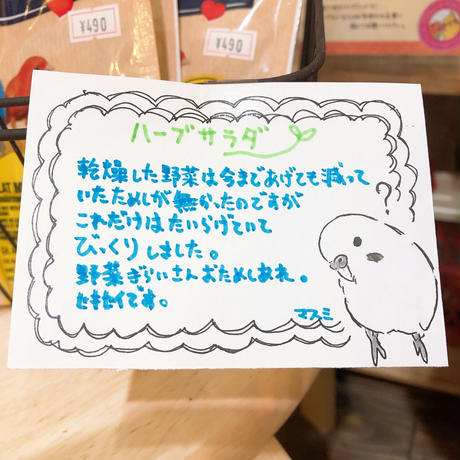 ¥490
¥490
ハーブサラダ
乾燥した野菜は今まであげても減って
いたためしが無かったのですが
これだけはたいらげていて
びっくりしました。
野菜ぎらいさんおためしあれ。
セキセイです。
マスミ
?